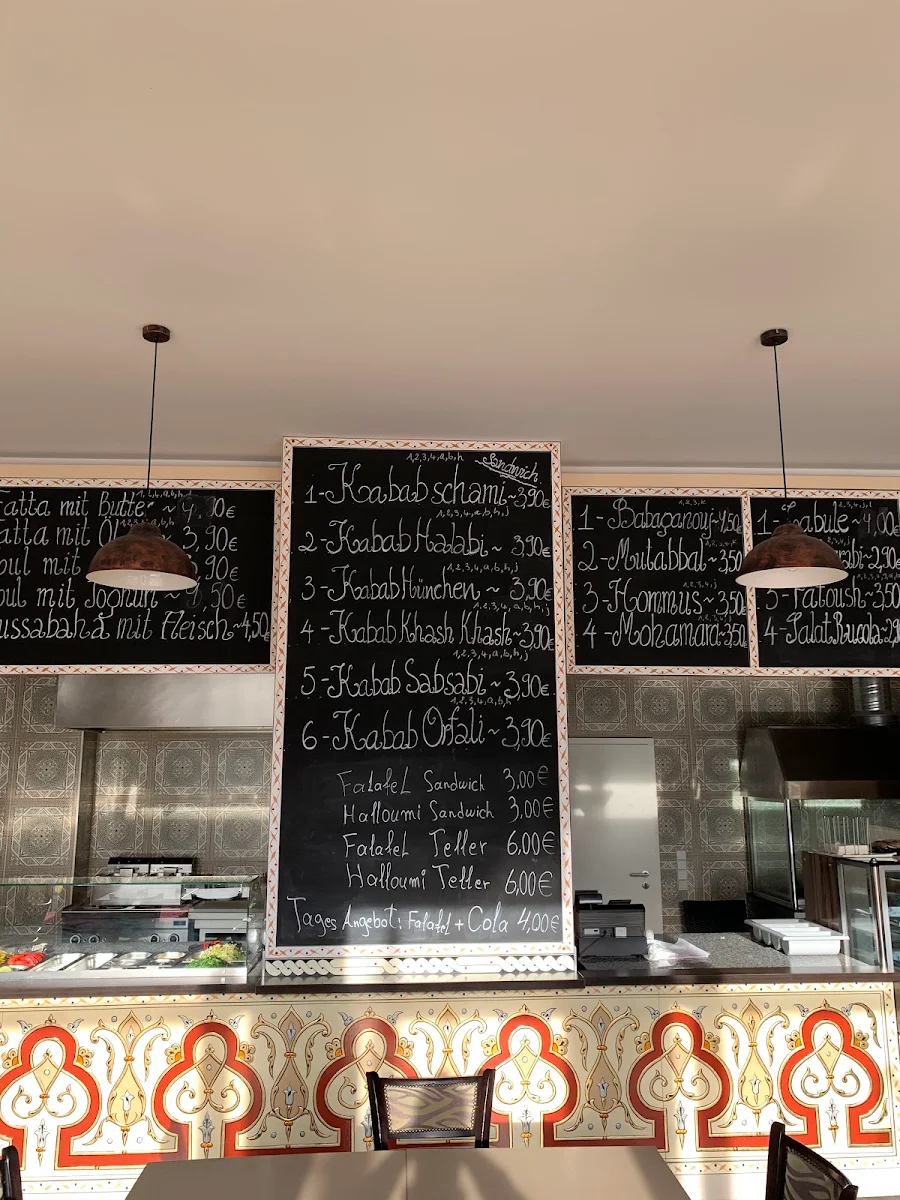 Fatta mit Butter ~ 4,90€
Fatta mit Öl 3,90€
Foul mit 3,90€
Foul mit Joghurt ~ 4,50€
ussabaha mit Fleisch ~ 4,50€
1,2,3,4,a,b,h
Sandwich
1-Kabab schami ~ 3,90€
1,2,3,4,a,b,h,j
2-Kabab Halabi ~ 3,90€
1,2,3,4,a,b,h,j
3-Kabab München ~ 3,90€
1,2,3,4,a,b,h,j
4-Kabab Khash Khash ~ 3,90€
1,2,3,4,a,b,h,j
5-Kabab Sabsabi ~ 3,90€
1,2,3,4,a,b,h
6-Kabab Orfali ~ 3,90€
Falafel Sandwich 3,00€
Halloumi Sandwich 3,00€
Falafel Teller 6,00€
Halloumi Teller 6,00€
Tages Angebot: Falafel + Cola 4,00€
1-Babaganouj ~ 4,50
2-Mutabbal ~ 3,50
3-Hommus ~ 3,50
4-Mohamara ~ 3,50
1-Tabule ~ 4,00€
2,90€
3-Fatoush ~ 3,50€
4-Salat Rucola ~ 2,9